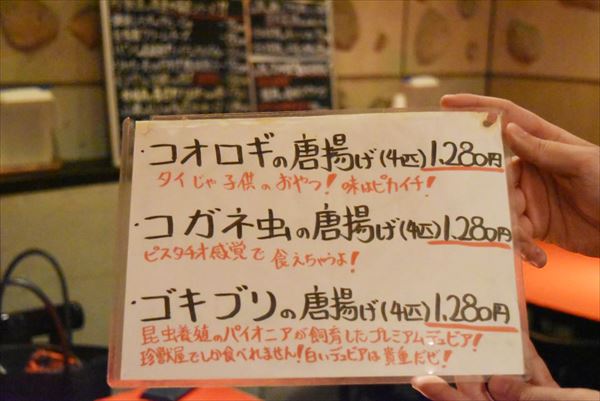 ・コオロギの唐揚げ(4匹)1,280円
タイじゃ子供のおやつ！味はピカイチ！
・コガネ虫の唐揚げ(4匹)1,280円
ピスタチオ感覚で食えちゃうよ！
・ゴキブリの唐揚げ(4匹)1,280円
昆虫養殖のパイオニアが飼育したプレミアムデュビア！
珍獣屋でしか食べれません！白いデュビアは貴重だぜ！